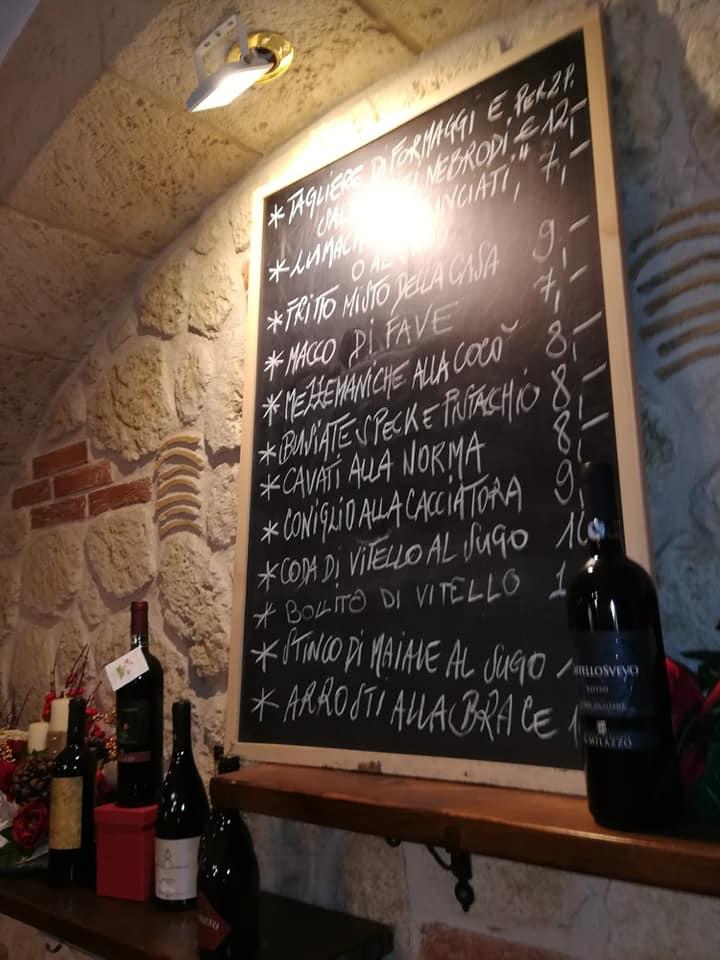 * TAGLIERE DI FORMAGGI E PER 2 P.
NEBRODI € 12,-
* 7,-
O AL
* FRITTO MISTO DELLA CASA 9,-
* MACCO DI FAVE 7,-
* MEZZEMANICHE ALLA COCÒ 8,-
* BUSIATE SPECK E PISTACCHIO 8,-
* CAVATI ALLA NORMA 8,-
* CONIGLIO ALLA CACCIATORA 9,
* CODA DI VITELLO AL SUGO
* BOLLITO DI VITELLO
* STINCO DI MAIALE AL SUGO
* ARROSTI ALLA BRACE
TELLOSVEVO
ROSSO
MILAZZO